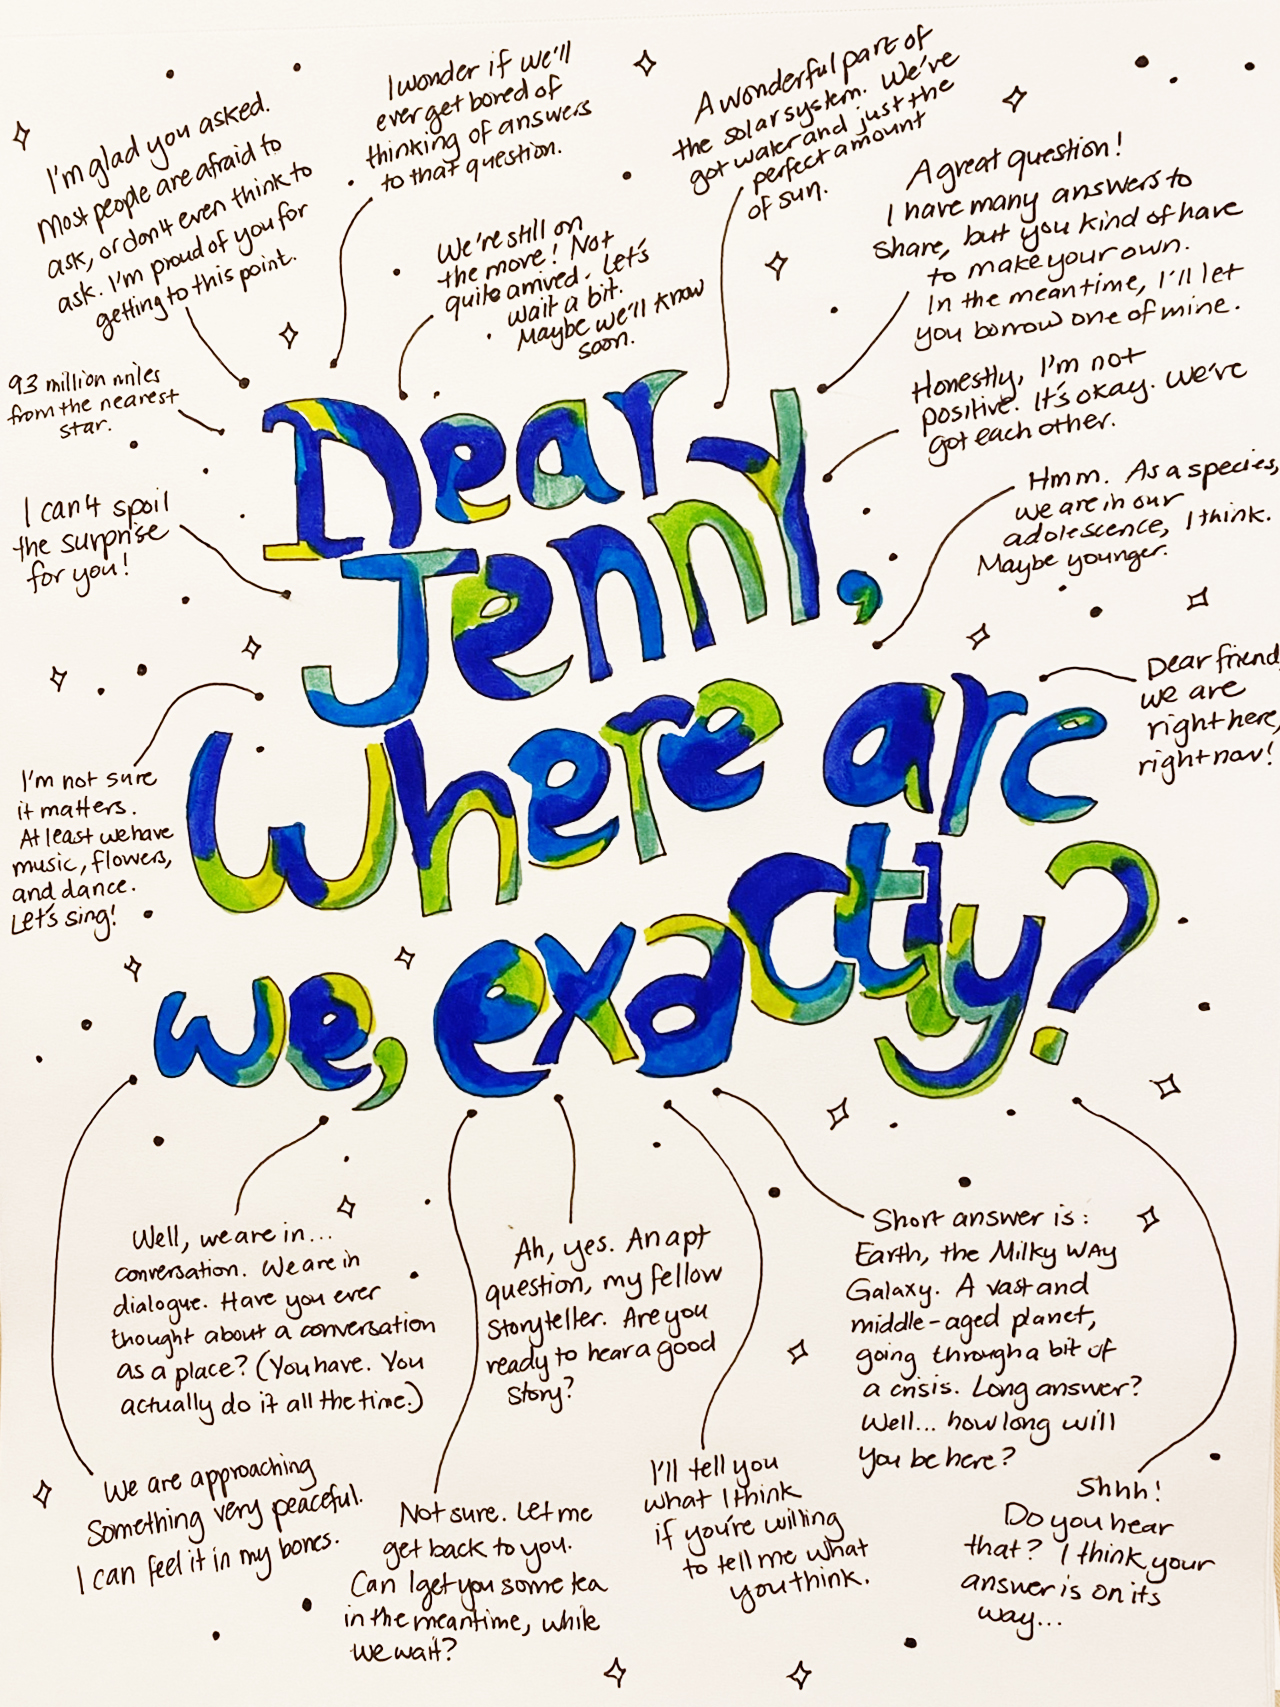 I'm glad you asked.
Most people are afraid to
ask, or don't even think to
ask. I'm proud of you for
getting to this point.
I wonder if we'll
ever get bored of
thinking of answers
to that question.
We're still on
the move! Not
quite arrived. Let's
wait a bit.
Maybe we'll know
soon.
A wonderful part of
the solar system. We've
got water and just the
perfect amount
of sun.
A great question!
I have many answers to
share, but you kind of have
to make your own.
In the meantime, I'll let
you borrow one of mine.
93 million miles
from the nearest
star.
Honestly, I'm not
positive. It's okay. We've
got each other.
I can't spoil
the surprise
for you!
Hmm. As a species,
we are in our
adolescence, I think.
Maybe younger.
Dear
Jenny,
Where are
we, exactly?
Dear friend,
we are
right here,
right now!
I'm not sure
it matters.
At least we have
music, flowers,
and dance.
Let's sing!
Well, we are in...
conversation. We are in
dialogue. Have you ever
thought about a conversation
as a place? (You have. You
actually do it all the time.)
Ah, yes. An apt
question, my fellow
Storyteller. Are you
ready to hear a good
Story?
Short answer is:
Earth, the Milky Way
Galaxy. A vast and
middle-aged planet,
going through a bit of
a crisis. Long answer?
Well... how long will
you be here?
We are approaching
Something very peaceful.
I can feel it in my bones.
Not sure. Let me
get back to you.
Can I get you some tea
in the meantime, while
we wait?
I'll tell you
what I think
if you're willing
to tell me what
you think.
Shhh!
Do you hear
that? I think your
answer is on its
way...